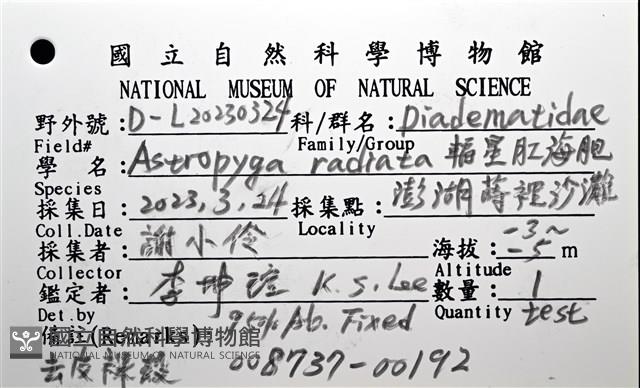 國立自然科學博物館
NATIONAL MUSEUM OF NATURAL SCIENCE
野外號:D-L20230324 科/群名:Diadematidae
Field# Family/Group
學 名:Astropyga radiata 輻星肛海胆
Species
採集日:2023,3,24 採集點:澎湖蒔裡沙灘
Coll.Date Locality
採集者:謝小伶 海拔:-3~-5 m
Collector Altitude
鑑定者:李坤瑄 K.S.Lee 數量:1
Det.by Quantity test
備註(Remarks) 95% Ab. Fixed
國立自然科學博物館
NATIONAL MUSEUM OF NATURAL SCIENCE
008737-00192